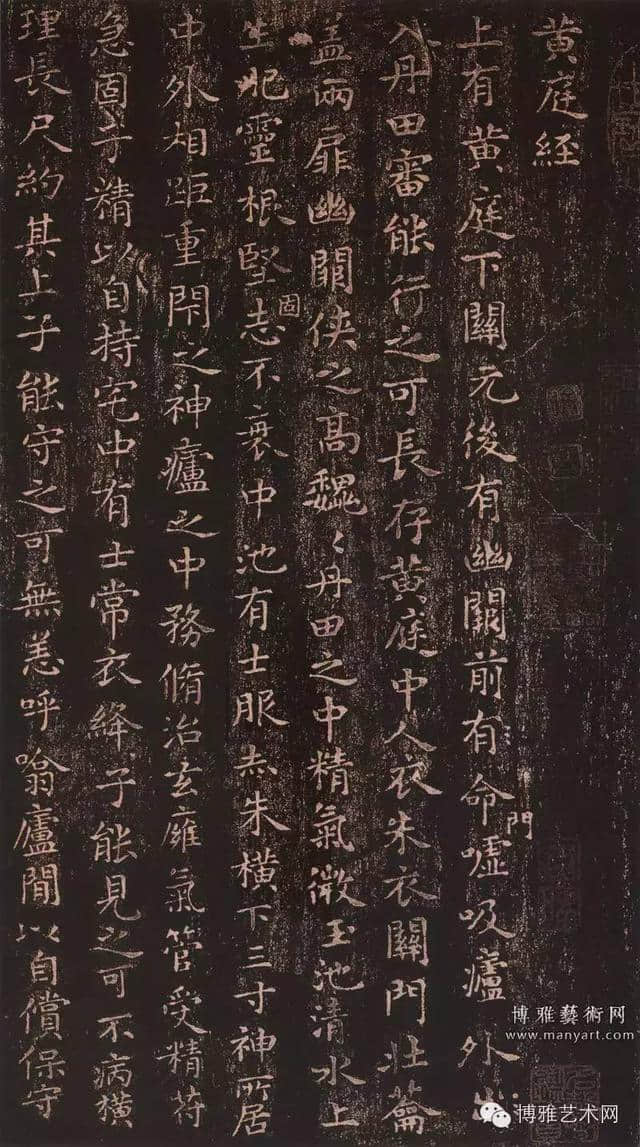 黄庭経
上有黄庭下關元後有幽闕前有命門嘘吸廬外出
入丹田審能行之可長存黄庭中人衣朱衣關門壮蘥
盖兩扉幽闕侠之高魏〻丹田之中精氣微玉池清水上
生肥靈根堅固志不衰中池有士服赤朱横下三寸神所居
中外相距重閇之神廬之中務脩治玄廱氣管受精符
急固子精以自持宅中有士常衣絳子能見之可不病横
理長尺約其上子能守之可無恙呼噏廬間以自償保守
博雅藝術网
www.manyart.com
博雅艺术网